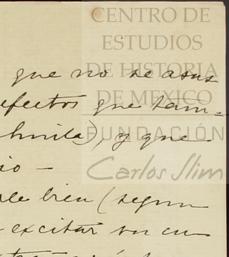 CENTRO DE
ESTUDIOS
DE HISTORIA
DE MEXICO
FUNDACIÓN
Carlos Slim
que no se asus
efectos que tam-
huila), y que
sio —
ale bien (segun
excitar su cu